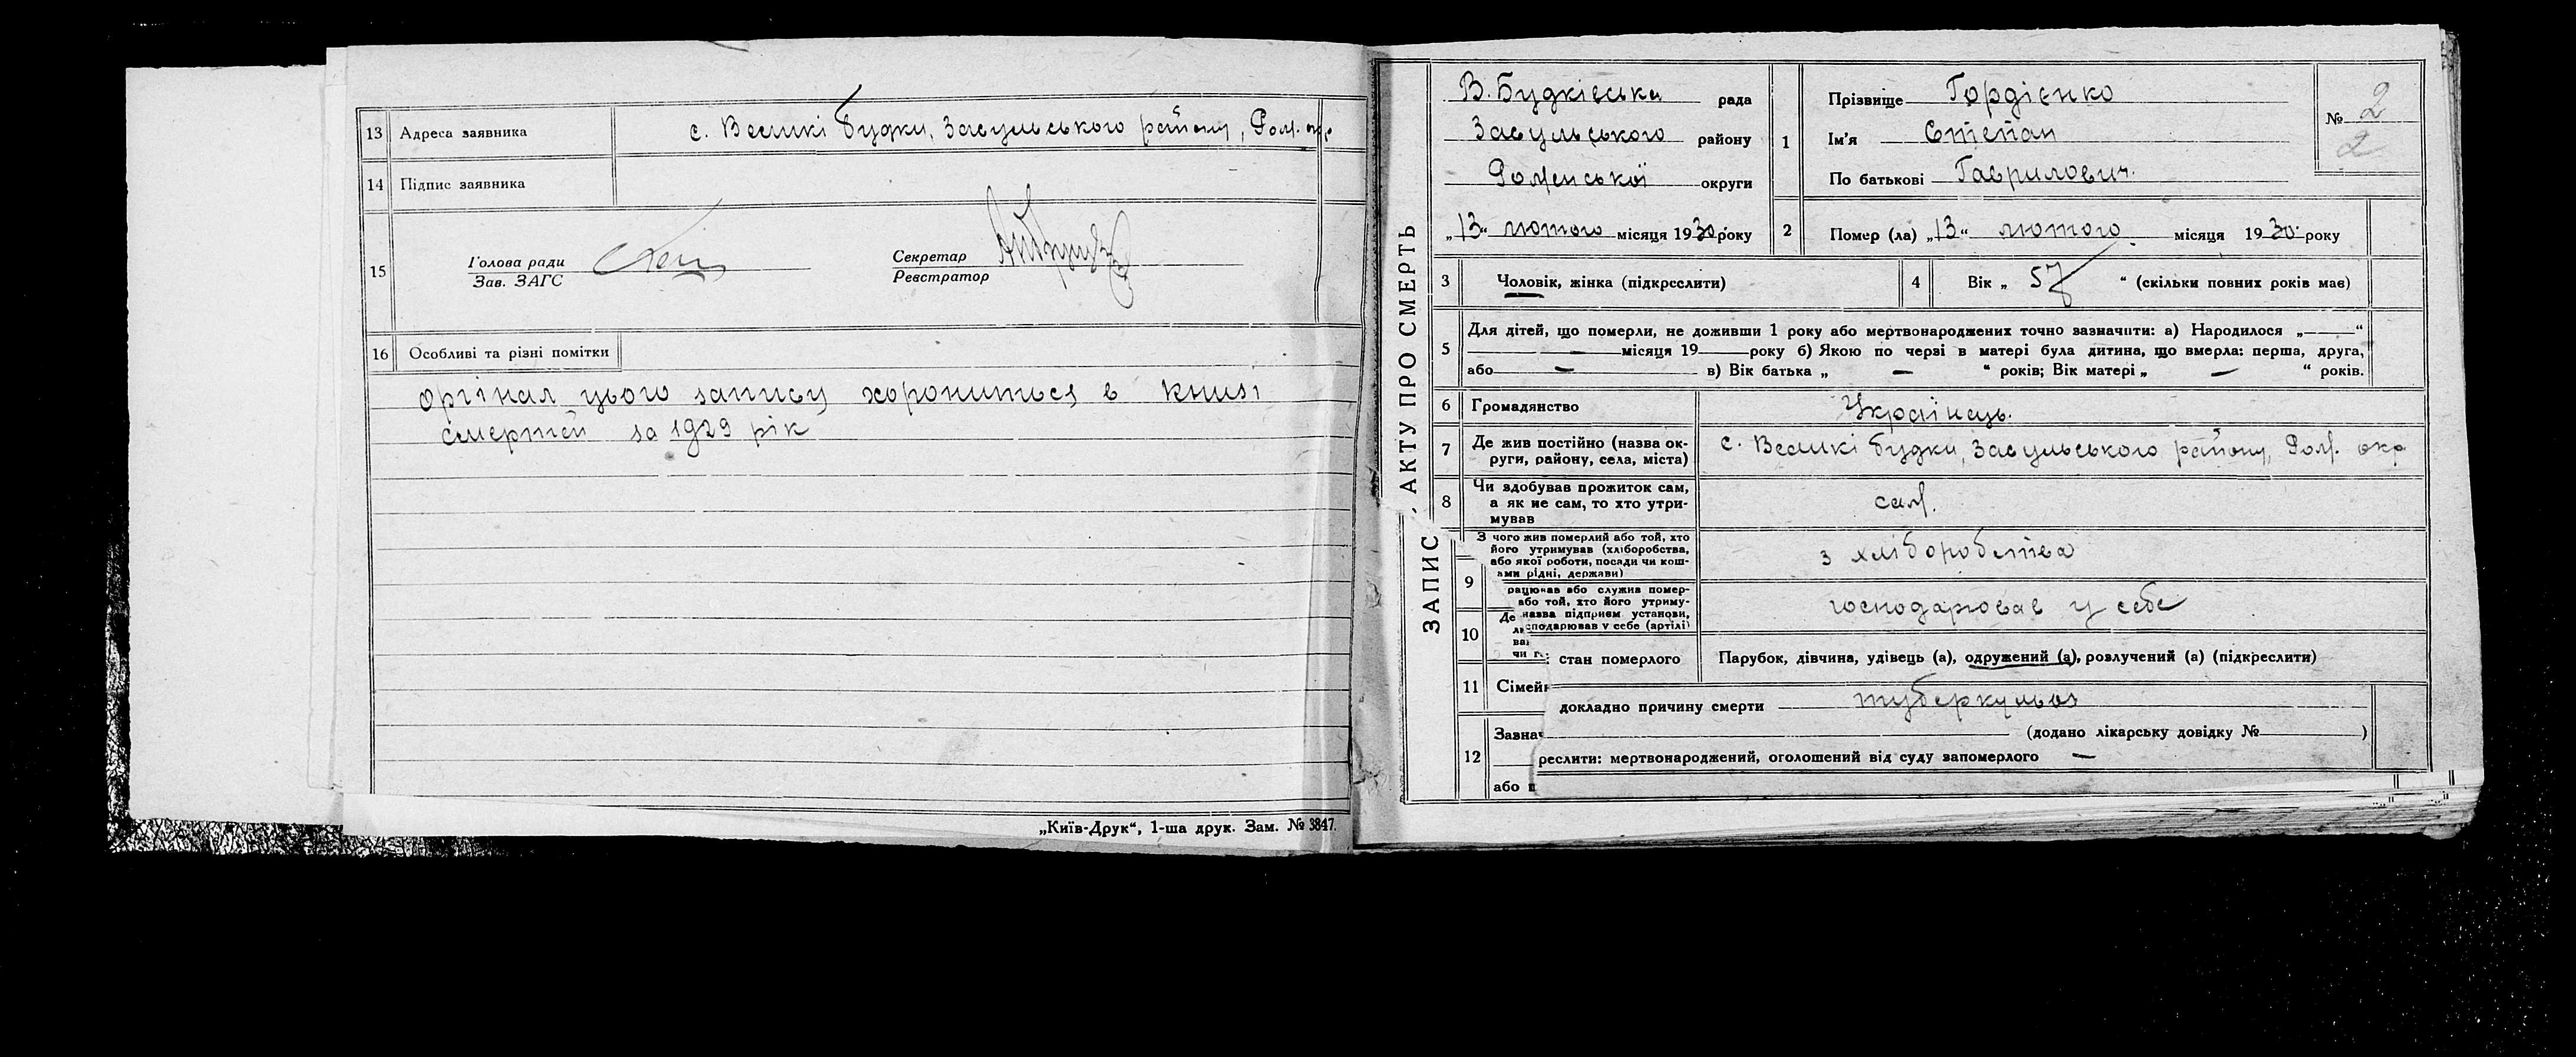 13 Адреса заявника с. Великі будки, Засульського району, Ром. окр
14 Підпис заявника
15
Голова ради
Зав. ЗАГС
Секретар
Реєстратор
16 Особливі та різні помітки
орігінал цього запису хорониться в книзі
смертей за 1929 рік
„Київ-Друк“, 1-ша друк. Зам. № 3847.
ЗАПИС АКТУ ПРО СМЕРТЬ
В. Будківська рада
Засульського району
Роменської округи
„13“ лютого місяця 1930 року
1 Прізвище Гордієнко
Ім'я Степан
По батькові Гаврилович.
№ 2
2
2 Помер (ла) „13“ лютого місяця 1930 року
3 Чоловік, жінка (підкреслити)
4 Вік „ 57 “ (скільки повних років має)
5 Для дітей, що померли, не доживши 1 року або мертвонароджених точно зазначити: а) Народилося „—“
— місяця 19 року б) Якою по черзі в матері була дитина, що вмерла: перша, друга,
або — в) Вік батька „ — “ років; Вік матері „ — “ років.
6 Громадянство Українець.
7 Де жив постійно (назва ок-
руги, району, села, міста) с. Великі будки, Засульського району, Ром. окр
8 Чи здобував прожиток сам,
а як не сам, то хто утри-
мував сам.
З чого жив померлий або той, хто
його утримував (хліборобства,
або якої роботи, посади чи кош-
ами рідні, держави) з хліборобства
9
рацював або служив помер-
або той, хто його утриму-
назва підприєм установи,
сподарював у себе (артілі) господарював у себе
10 Де
ва
чи г
стан померлого Парубок, дівчина, удівець (а), одружений (а), розлучений (а) (підкреслити)
11 Сімей
докладно причину смерти туберкульоз
Зазнач (додано лікарську довідку № )
12 реслити: мертвонароджений, оголошений від суду запомерлого —
або п